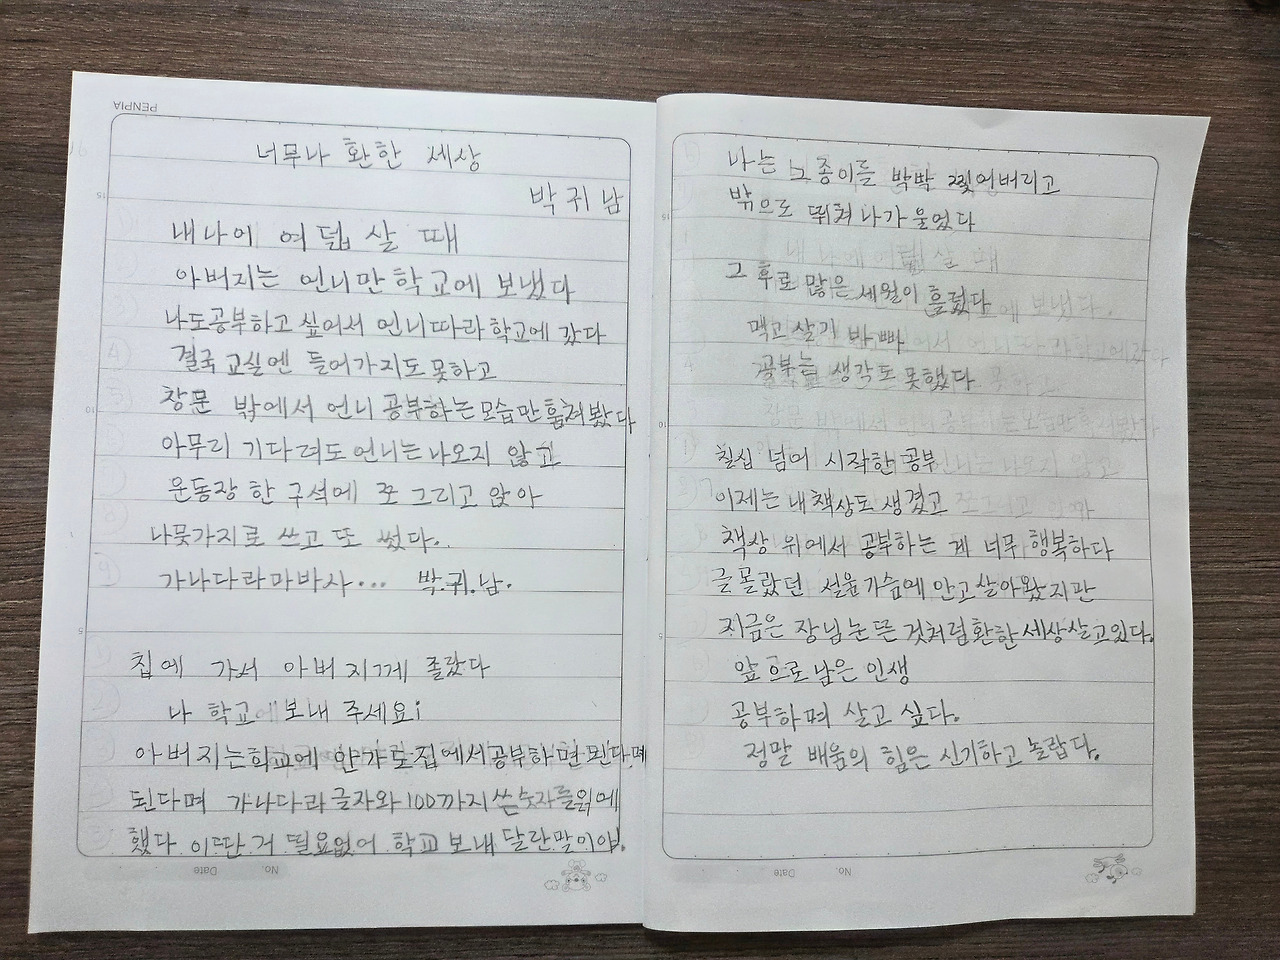 PENPIA
너무나 환한 세상
박귀남
내나이 여덟 살 때
아버지는 언니만 학교에 보냈다
나도공부하고 싶어서 언니따라 학교에 갔다
결국 교실엔 들어가지도 못하고
창문 밖에서 언니 공부하는모습만훔쳐봤다
아무리 기다려도 언니는 나오지 않고
운동장 한 구석에 쪼그리고 앉아
나뭇가지로 쓰고 또 썼다.
가나다라마바사... 박.귀.남.
집에 가서 아버지께 졸랐다
나 학교에 보내 주세요!
아버지는 안가도 집에서공부하면 된다며
된다며 가나다라 글자와 100까지 쓴 숫자를
했다 이딴거 필요없어 학교 보내 달란말이야.
No. Date
나는 그종이들 박박 찢어버리고
밖으로 뛰쳐나가 울었다
그 후로 많은 세월이 흘렀다
먹고 살기 바빠
공부는 생각도 못했다
칠십 넘어 시작한 공부
이제는 내책상도 생겼고
책상 위에서 공부하는 게 너무 행복하다
글 몰랐던 설움가슴에 안고살아왔지만
지금은 장님눈뜬 것처럼환한세상살고있다.
앞으로 남은 인생
공부하며 살고 싶다.
정말 배움의 힘은 신기하고 놀랍다.
No. Date